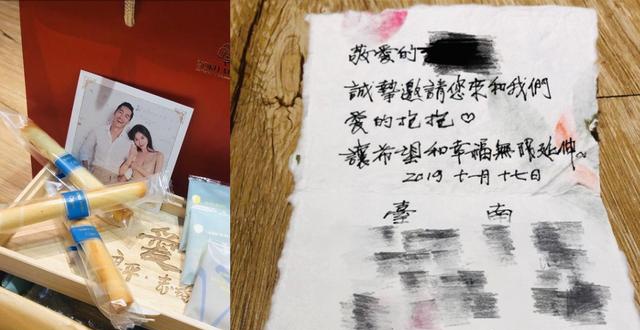 愛
敬愛的
誠摯邀請您來和我們
愛的抱抱♡
讓希望和幸福無限延伸。
2019 十一月 十七日
臺 南